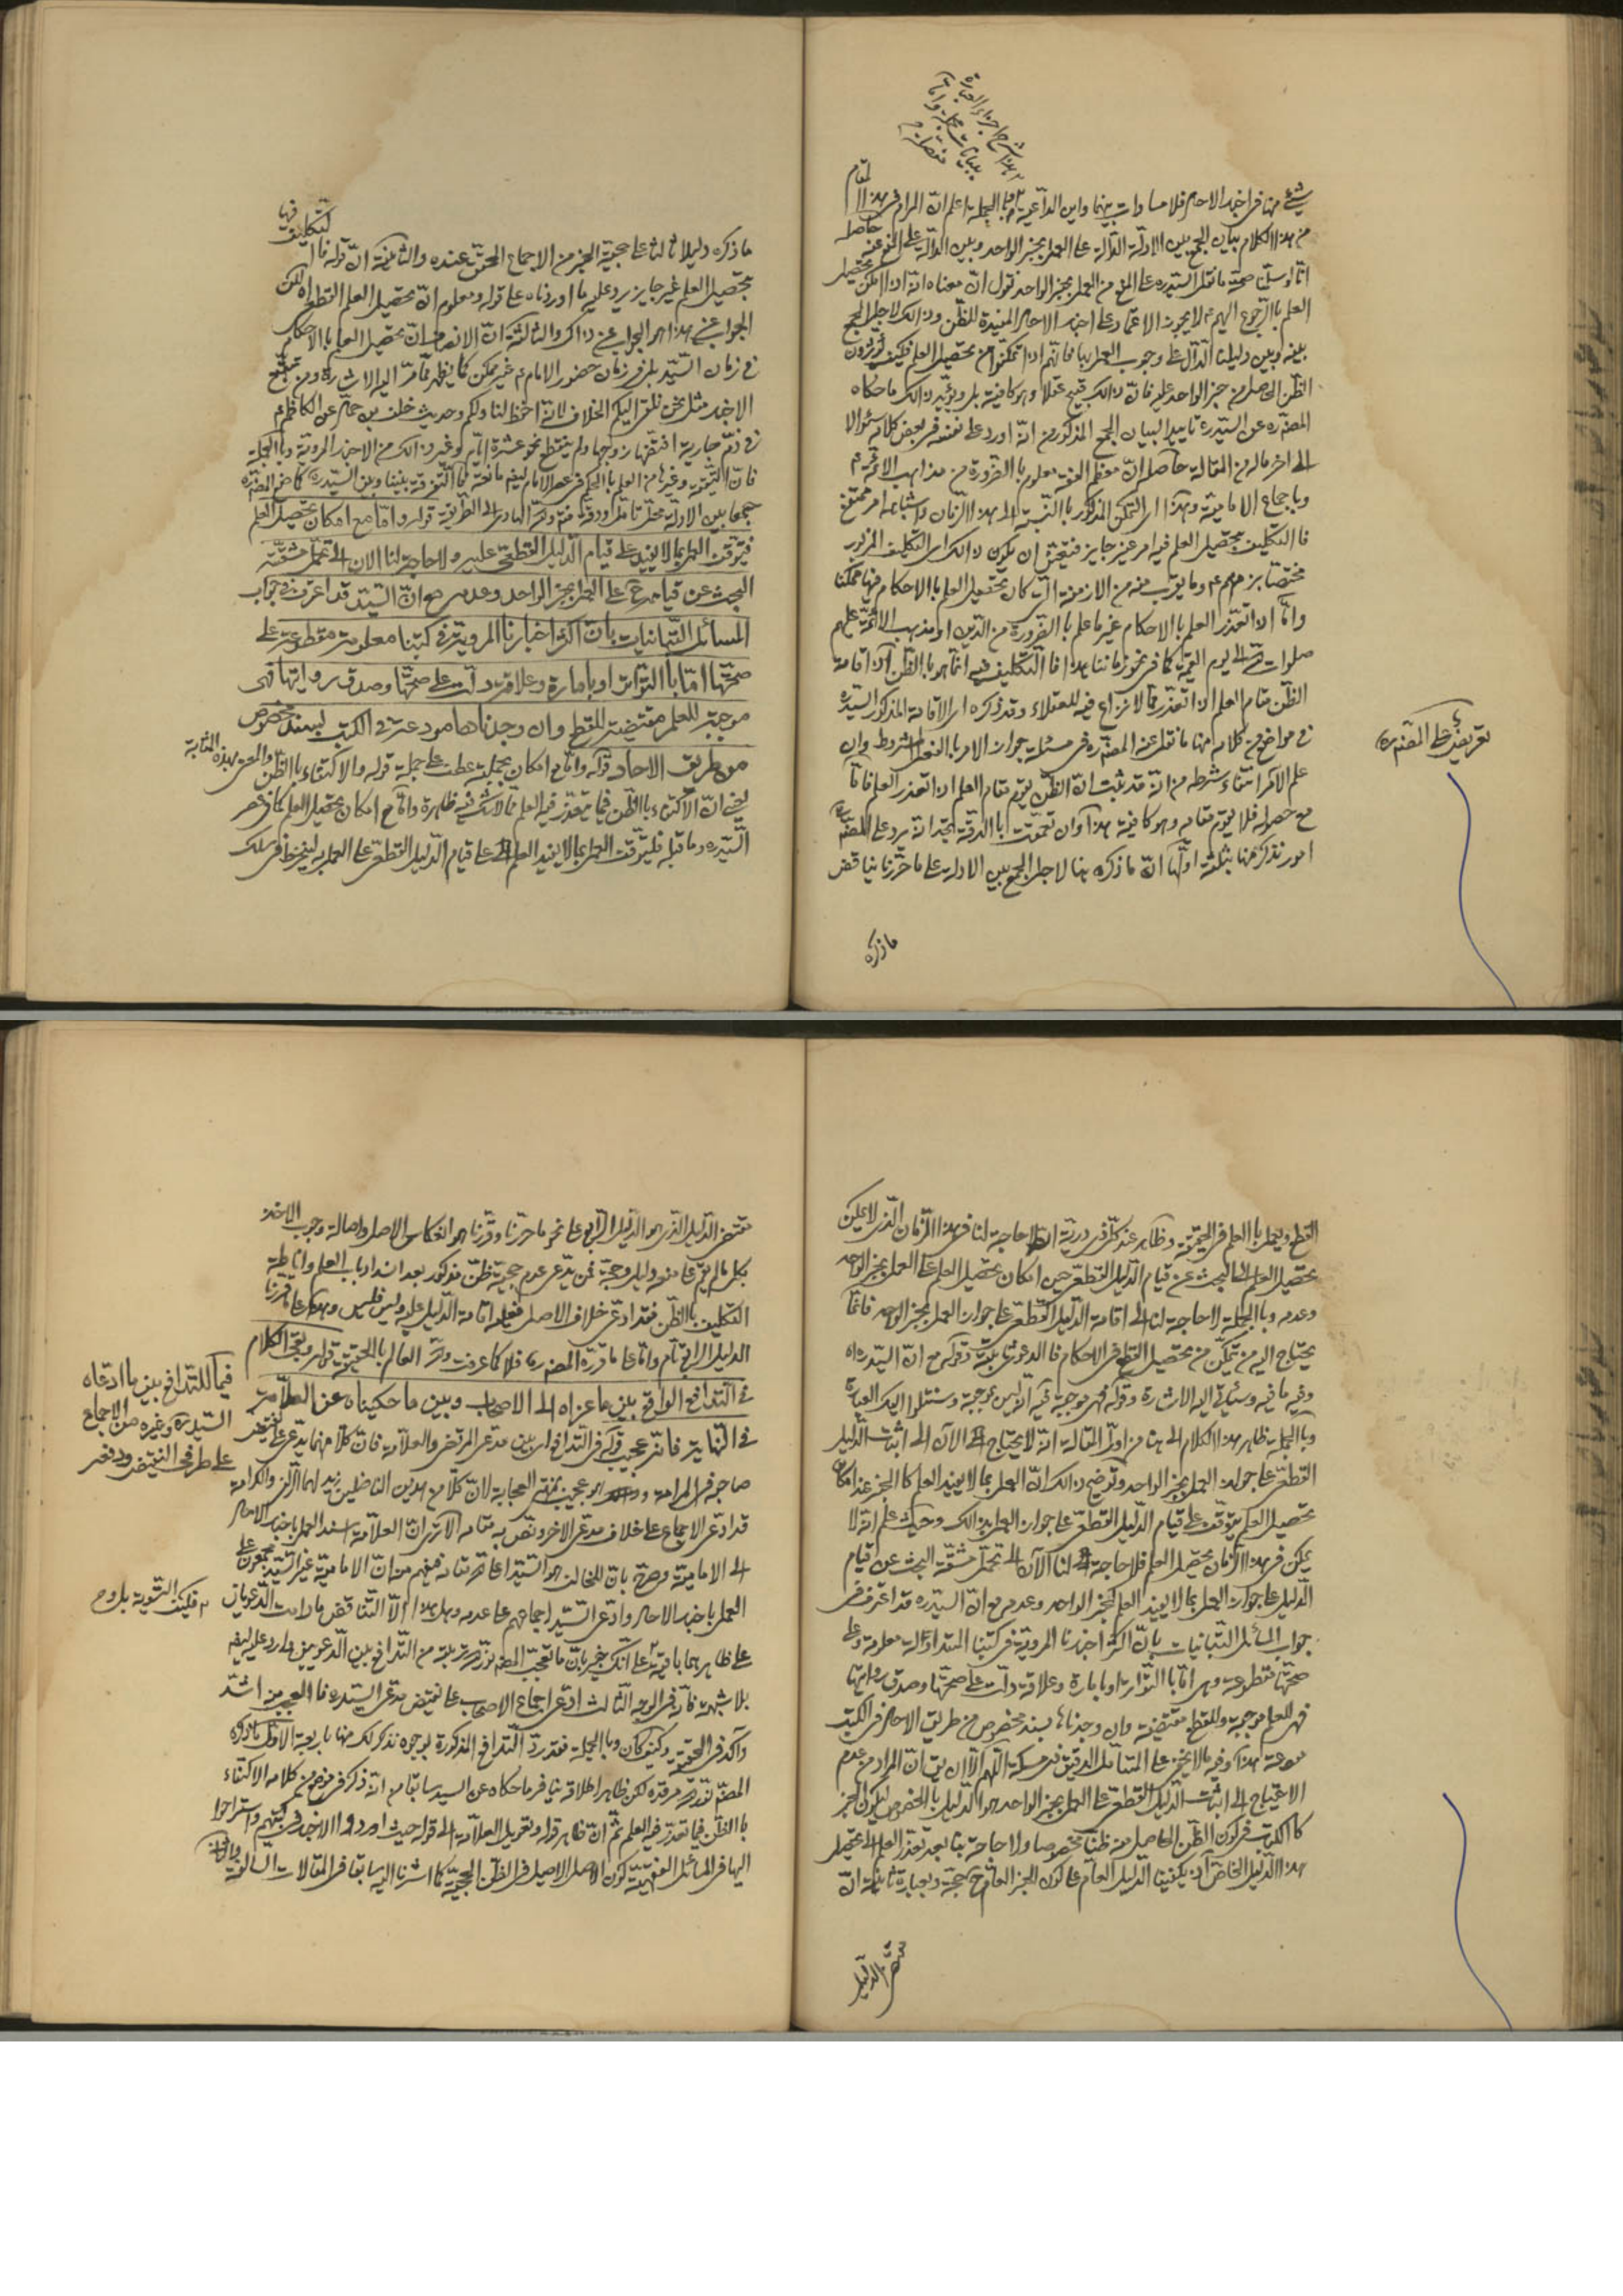 شيئ منها في اخبار الاحاد فلا مساوات بينهما واين الداعية وبالجملة اعلم ان المرام في هذا المقام
من هذا الكلام بيان الجمع بين الادلة الدالة على العمل بخبر الواحد وبين الدالة على المنع عنه حاصله
انا لو سلمنا صحة ما نقل السيد ره على المنع من العمل بخبر الواحد نقول ان معناه انه اذا امكن تحصيل
العلم بالرجوع اليهم ع لا يجوز الاعتماد على اخبار الاحاد المفيدة للظن وذلك لاجل الجمع
بينه وبين دليلنا الدال على وجوب العمل بها فانهم اذا تمكنوا من تحصيل العلم فكيف يؤثرون
الظن الحاصل من خبر الواحد عليه فان ذلك قبيح عقلا وهو كافية بل ويؤيد ذلك ما حكاه
المصنف ره عن السيد ره تاييدا لبيان الجمع المذكور من انه اورد على نفسه في بعض كلامه سؤالا
الى اخر ماله من المقالة حاصله ان معظم الفقه معلوم بالضرورة من مذاهب الائمة ع
وباجماع الامامية وهكذا اي التمكن المذكور بالنسبة الى هذا الزمان واشباهه امر ممتنع
فالتكليف بتحصيل العلم فيه امر غير جايز فيتعين ان يكون ذلك اي التكليف المزبور
مختصا بزمنهم ع وما يقرب منه من الازمنة التي كان تحصيل العلم بالاحكام فيها ممكنا
واما اذا تعذر العلم بالاحكام غير ما علم بالضرورة من الدين او مذهب الائمة عليهم
صلوات الله الى يوم القيمة كما في نحو زماننا هذا فالتكليف فيه انما هو بالظن لان اقامة
الظن مقام العلم اذا تعذر مما لا نزاع فيه للعقلاء وقد ذكره اي الاقامة المذكور السيد ره
في مواضع من كلامه منها ما نقل عنه المصنف ره في مسئلة جواز الامر بالفعل المشروط وان
علم الآمر انتفاء شرطه من انه قد ثبت ان الظن يقوم مقام العلم اذا تعذر العلم فاما
مع حصوله فلا يقوم مقامه وهو كافية هذا وان تعمقت بالدقة تجد انه يرد على المصنف ره
امور نذكر منها ثلثة اولها ان ما ذكره هنا لاجل الجمع بين الادلة على ما حررنا يناقض
تعريض على المصنف ره
ما ذكره
ما ذكره دليلا ثالثا على حجية الخبر من الاجماع المحقق عنده والثانية ان قوله فالتكليف فيها
بتحصيل العلم غير جايز يرد عليه ما اوردناه على قوله ومعلوم ان تحصيل العلم القطعي اه لكن
الجواب عن هذا هو الجواب عن ذاك والثالثة ان الانصاف ان تحصيل العلم بالاحكام
في زمان السيد بل في زمان حضور الامام ع غير ممكن كما يظهر مما مر اليه الاشارة ومن تتبع
الاخبار مثل نحن نلقي اليكم الخلاف لانه احفظ لنا ولكم وحديث خلف بن حماد عن الكاظم ع
في دم جارية افتضها زوجها ولم ينقطع نحو عشرة ايام لو غير ذلك من الاخبار المروية وبالجملة
فان التقية وغيرها من العلم بالحكم في عصر الامام ليقع مانعة فما التفرقة بيننا وبين السيد ره كما صنع المصنف ره
جمعا بين الادلة محل تامل ودقة فتدبر والله الهادي الى الطريقة قوله واما مع امكان تحصيل العلم
فيتوقف العمل بما لا يفيد على قيام الدليل القطعي عليه ولا حاجة لنا الان الى تحمل مشقة
البحث عن قيامه ح على العمل بخبر الواحد وعدمه مع ان السيد قد اعترف في جواب
المسائل التبانيات بان اكثر اخبارنا المروية في كتبنا معلومة مقطوعة على
صحتها اما بالتواتر او بامارة وعلامة دلت على صحتها وصدق رواتها فهي
موجبة للعلم مقتضية للقطع وان وجدناها مودعة في الكتب بسند مخصوص
من طريق الاحاد قوله واما مع امكان بجملته عطف على جملة قوله والاكتفاء بالظن
يعني ان الاكتفاء بالظن فيما يتعذر فيه العلم مما لا شك فيه ظاهرة واما مع امكان تحصيل العلم كما في عصر
السيد ره وما قبله فليتوقف العمل بما لا يفيد العلم على قيام الدليل القطعي على العمل به لينخرط في سلك
القطع ويعمل بالعلم في الحقيقة وظاهر عند كل ذي درية انه لا حاجة لنا في هذا الزمان الذي لا يمكن
تحصيل العلم الى البحث عن قيام الدليل القطعي حين امكان تحصيل العلم على العمل بخبر الواحد
وعدمه وبالجملة لا حاجة لنا الى اقامة الدليل القطعي على جواز العمل بخبر الواحد فانما
يحتاج اليه من يتمكن من تحصيل القطع في الاحكام فالدعوى ثابتة وقوله مع ان السيد ره اه
وفيه ما فيه وسياتي اليه الاشارة وقوله فهي موجبة فيه اذ ليس موجبة وسنتلوا اليك العبارة
وبالجملة ظاهر هذا الكلام الى هنا من اول المقالة انه لا يحتاج الى الآن الى اثبات الدليل
القطعي على جواز العمل بخبر الواحد وتوضيح ذلك ان العمل بما لا يفيد العلم كالخبر عند امكان
تحصيل العلم يتوقف على قيام الدليل القطعي على جواز العمل بذلك وحيث علم انه لا
يمكن في هذا الزمان تحصيل العلم فلا حاجة لنا الآن الى تحمل مشقة البحث عن قيام
الدليل على جواز العمل بما لا يفيد العلم كخبر الواحد وعدمه مع ان السيد ره قد اعترف في
جواب المسائل التبانيات بان اكثر اخبارنا المروية في كتبنا المتداولة معلومة وعلى
صحتها مقطوعة وهي اما بالتواتر او بامارة وعلامة دلت على صحتها وصدق رواتها
فهي للعلم موجبة وللقطع مقتضية وان وجدناها بسند مخصوص من طريق الاحاد في الكتب
مودعة هذا وفيه ما لا يخفى على المتامل الدقيق ذي مسكة اللهم الا ان يق ان المراد من عدم
الاحتياج الى اثبات الدليل القطعي على العمل بخبر الواحد هو الدليل بالخصوص ليكون الخبر
كالكتاب في كون الظن الحاصل منه ظنا مخصوصا ولا حاجة بنا بعد تعذر العلم الى تحصيل
هذا الدليل الخاص اذ يكفينا الدليل العام على كون الخبر العام ح حجة وبعبارة ثانية ان
مقتضى الدليل
مقتضى الدليل الذي هو الدليل الرابع على نحو ما حررنا وقررنا هو انعكاس الاصل واصالة وجوب الاخذ
بكل ما لم يقم على منعه دليل وحجة فمن يدعي عدم حجية ظن مذكور بعد انسداد باب العلم واناطة
التكليف بالظن فقد ادعى خلاف الاصل فعليه اقامة الدليل عليه وليس فليس وهكذا على ما قررنا
الدليل الرابع تام واما على ما قرره المصنف ره فلا كما عرفت والله العالم بالحقيقة قوله وبقي الكلام
في التدافع الواقع بين ما عزاه الى الاصحاب وبين ما حكيناه عن العلامة
في النهاية فانه عجيب قوله في التدافع اي بين مدعى المرتضى والعلامة فان كلا منهما يدعي على نقيض
صاحبه في المرام وهو عجيب بمنتهى العجابة لان كلا من هذين الفاضلين زيد لهما الزلفى والكرامة
قد ادعى الاجماع على خلاف مدعى الاخر ونص به مقامه الا ترى ان العلامة اسند العمل باخبار الاحاد
الى الامامية وصرح بان المخالف هو السيد اتباعه فيفهم منه ان الامامية غير السيد مجمعون على
العمل باخبار الاحاد وادعى السيد اجماعهم على عدمه وهل هذا الا التناقض ما دامت الدعويان
على ظاهرهما باقية على انك خبير بان ما تعجب المصنف نور الله تربته من التدافع بين الدعويين وارد عليه ايضا
بلا شبهة فانه في الوجه الثالث ادعى اجماع الاصحاب على نقيض مدعى السيد ره فالعجب منه اشد
واكد في الحقيقة وكيف كان وبالجملة فقد رد التدافع المذكورة بوجوه نذكر لك منها باربعة الاول ما ذكره
المصنف نور الله مرقده لكن ظاهر اطلاقه ينافر ما حكاه عن السيد سابقا من انه ذكر في مواضع من كلامه الاكتفاء
بالظن فيما تعذر فيه العلم ثم ان ظاهر قوله وتعويل العلامة الى قوله حيث اوردوا الاخبار في كتبهم واستراحوا
اليها في المسائل الفقهية كون الاصل الاصيل في الظن الحجية كما اشرنا اليه سابقا في المقالات السالفة
فيما للتدافع بين ما ادعاه
السيد ره وغيره من الاجماع
على طرفي النقيض ودفعه
فكيف التسوية بل وح